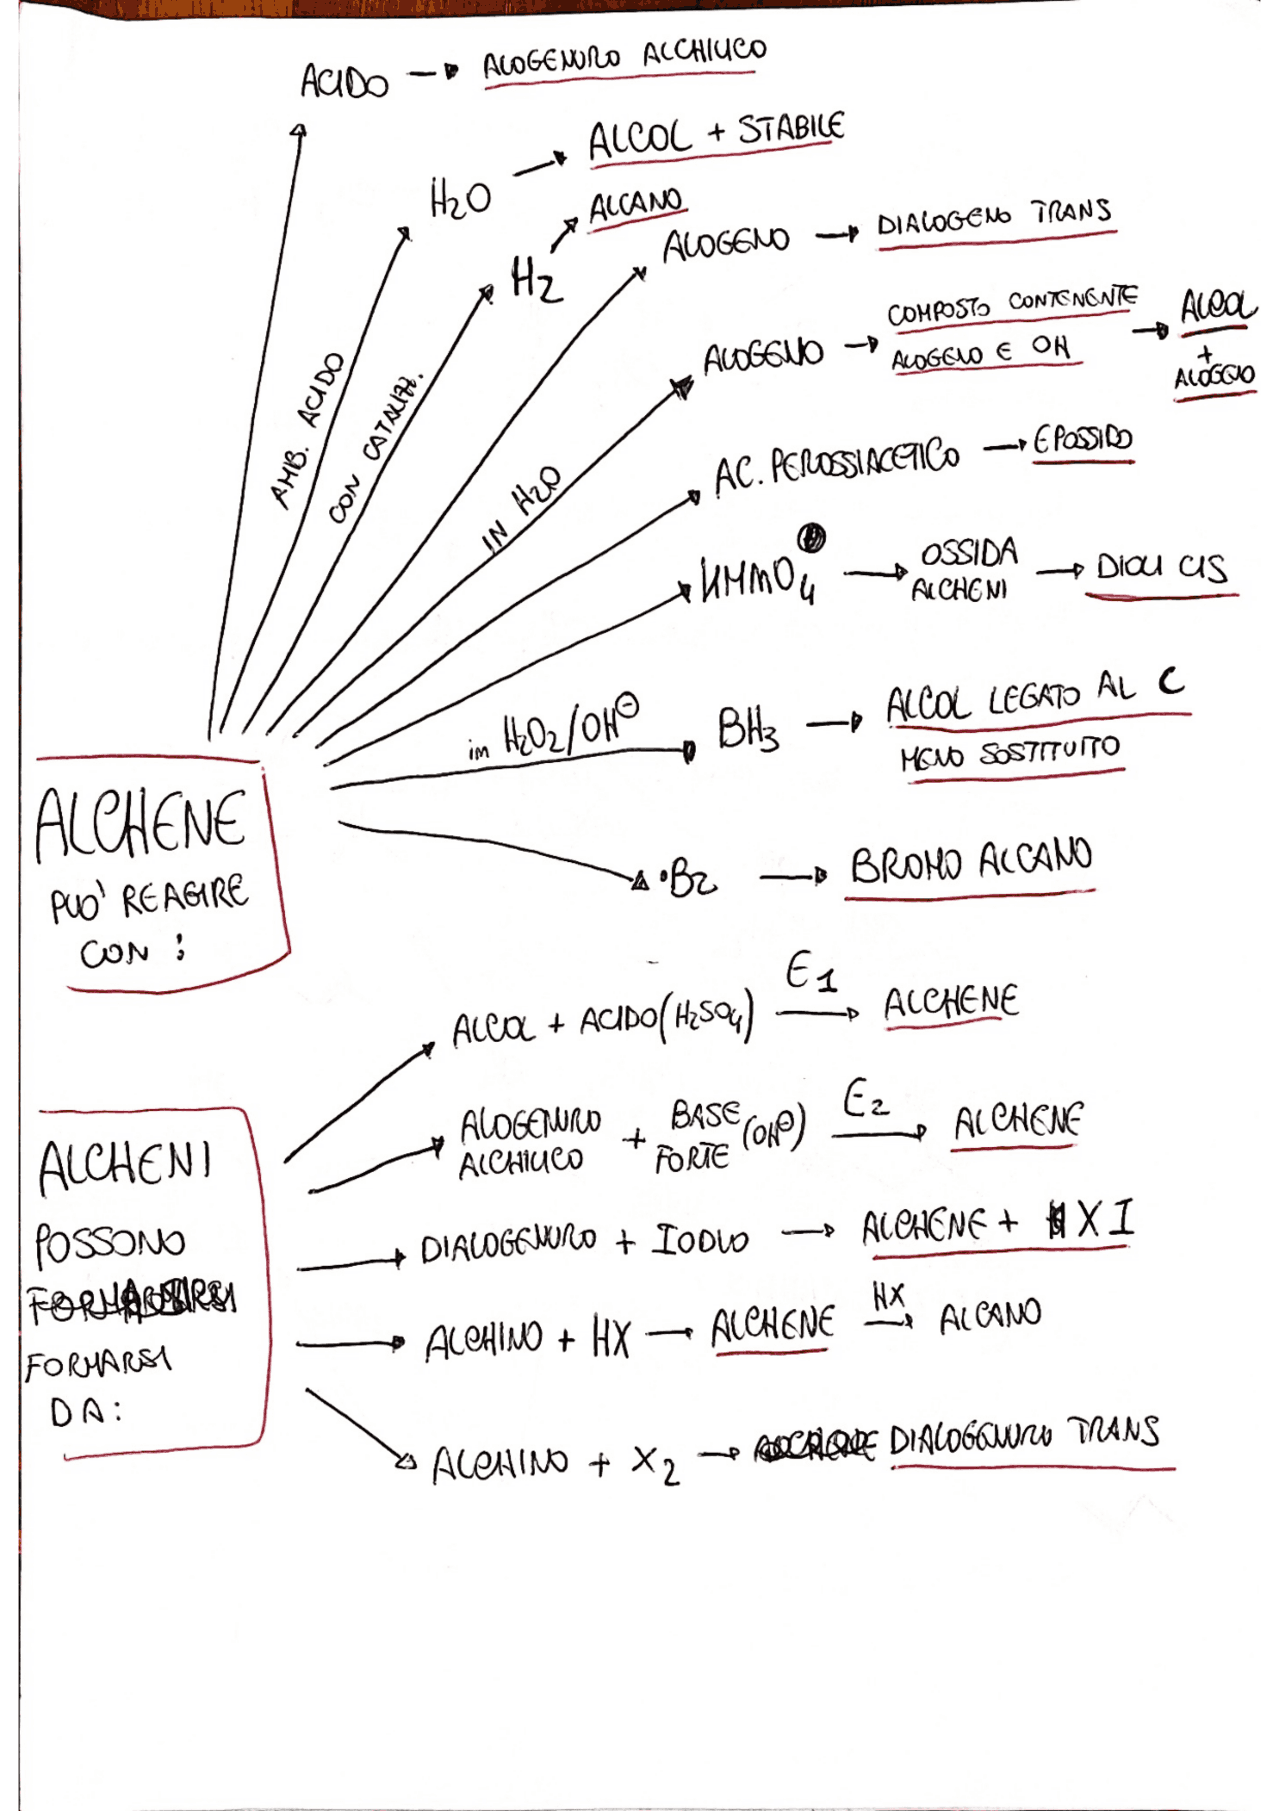 ACIDO → ALOGENURO ALCHILICO
H2O → ALCOL + STABILE
AMB. ACIDO
H2 → ALCANO
CON CATALIZZ.
ALOGENO → DIALOGENO TRANS
ALOGENO → COMPOSTO CONTENENTE ALOGENO E OH → ALCOL + ALOGENO
IN H2O
AC. PEROSSIACETICO → EPOSSIDO
KMMnO4 → OSSIDA ALCHENI → DIOLI CIS
im H2O2/OH⊖
BH3 → ALCOL LEGATO AL C
MENO SOSTITUITO
•Br → BROMO ALCANO
ALCHENE
PUO' REAGIRE
CON :
ALCOL + ACIDO (H2SO4) E1 → ALCHENE
ALOGENURO ALCHILICO + BASE FORTE (OH⊖) E2 → ALCHENE
DIALOGENURO + IODIO → ALCHENE + XI
ALCHINO + HX → ALCHENE HX → ALCANO
ALCHINO + X2 → DIALOGENURO TRANS
ALCHENI
POSSONO
FORMARSI
DA: